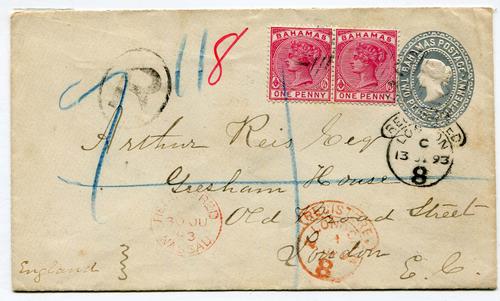 118
BAHAMAS
ONE PENNY
BAHAMAS
ONE PENNY
BAHAMAS POSTAGE
R
REGISTERED
LONDON
C
13 JY 93
8
Arthur Reis Esq
Gresham House
Old Broad Street
London
E.C.
England
REGISTERED
30 JU
93
NASSAU
REGISTERED
LONDON
8